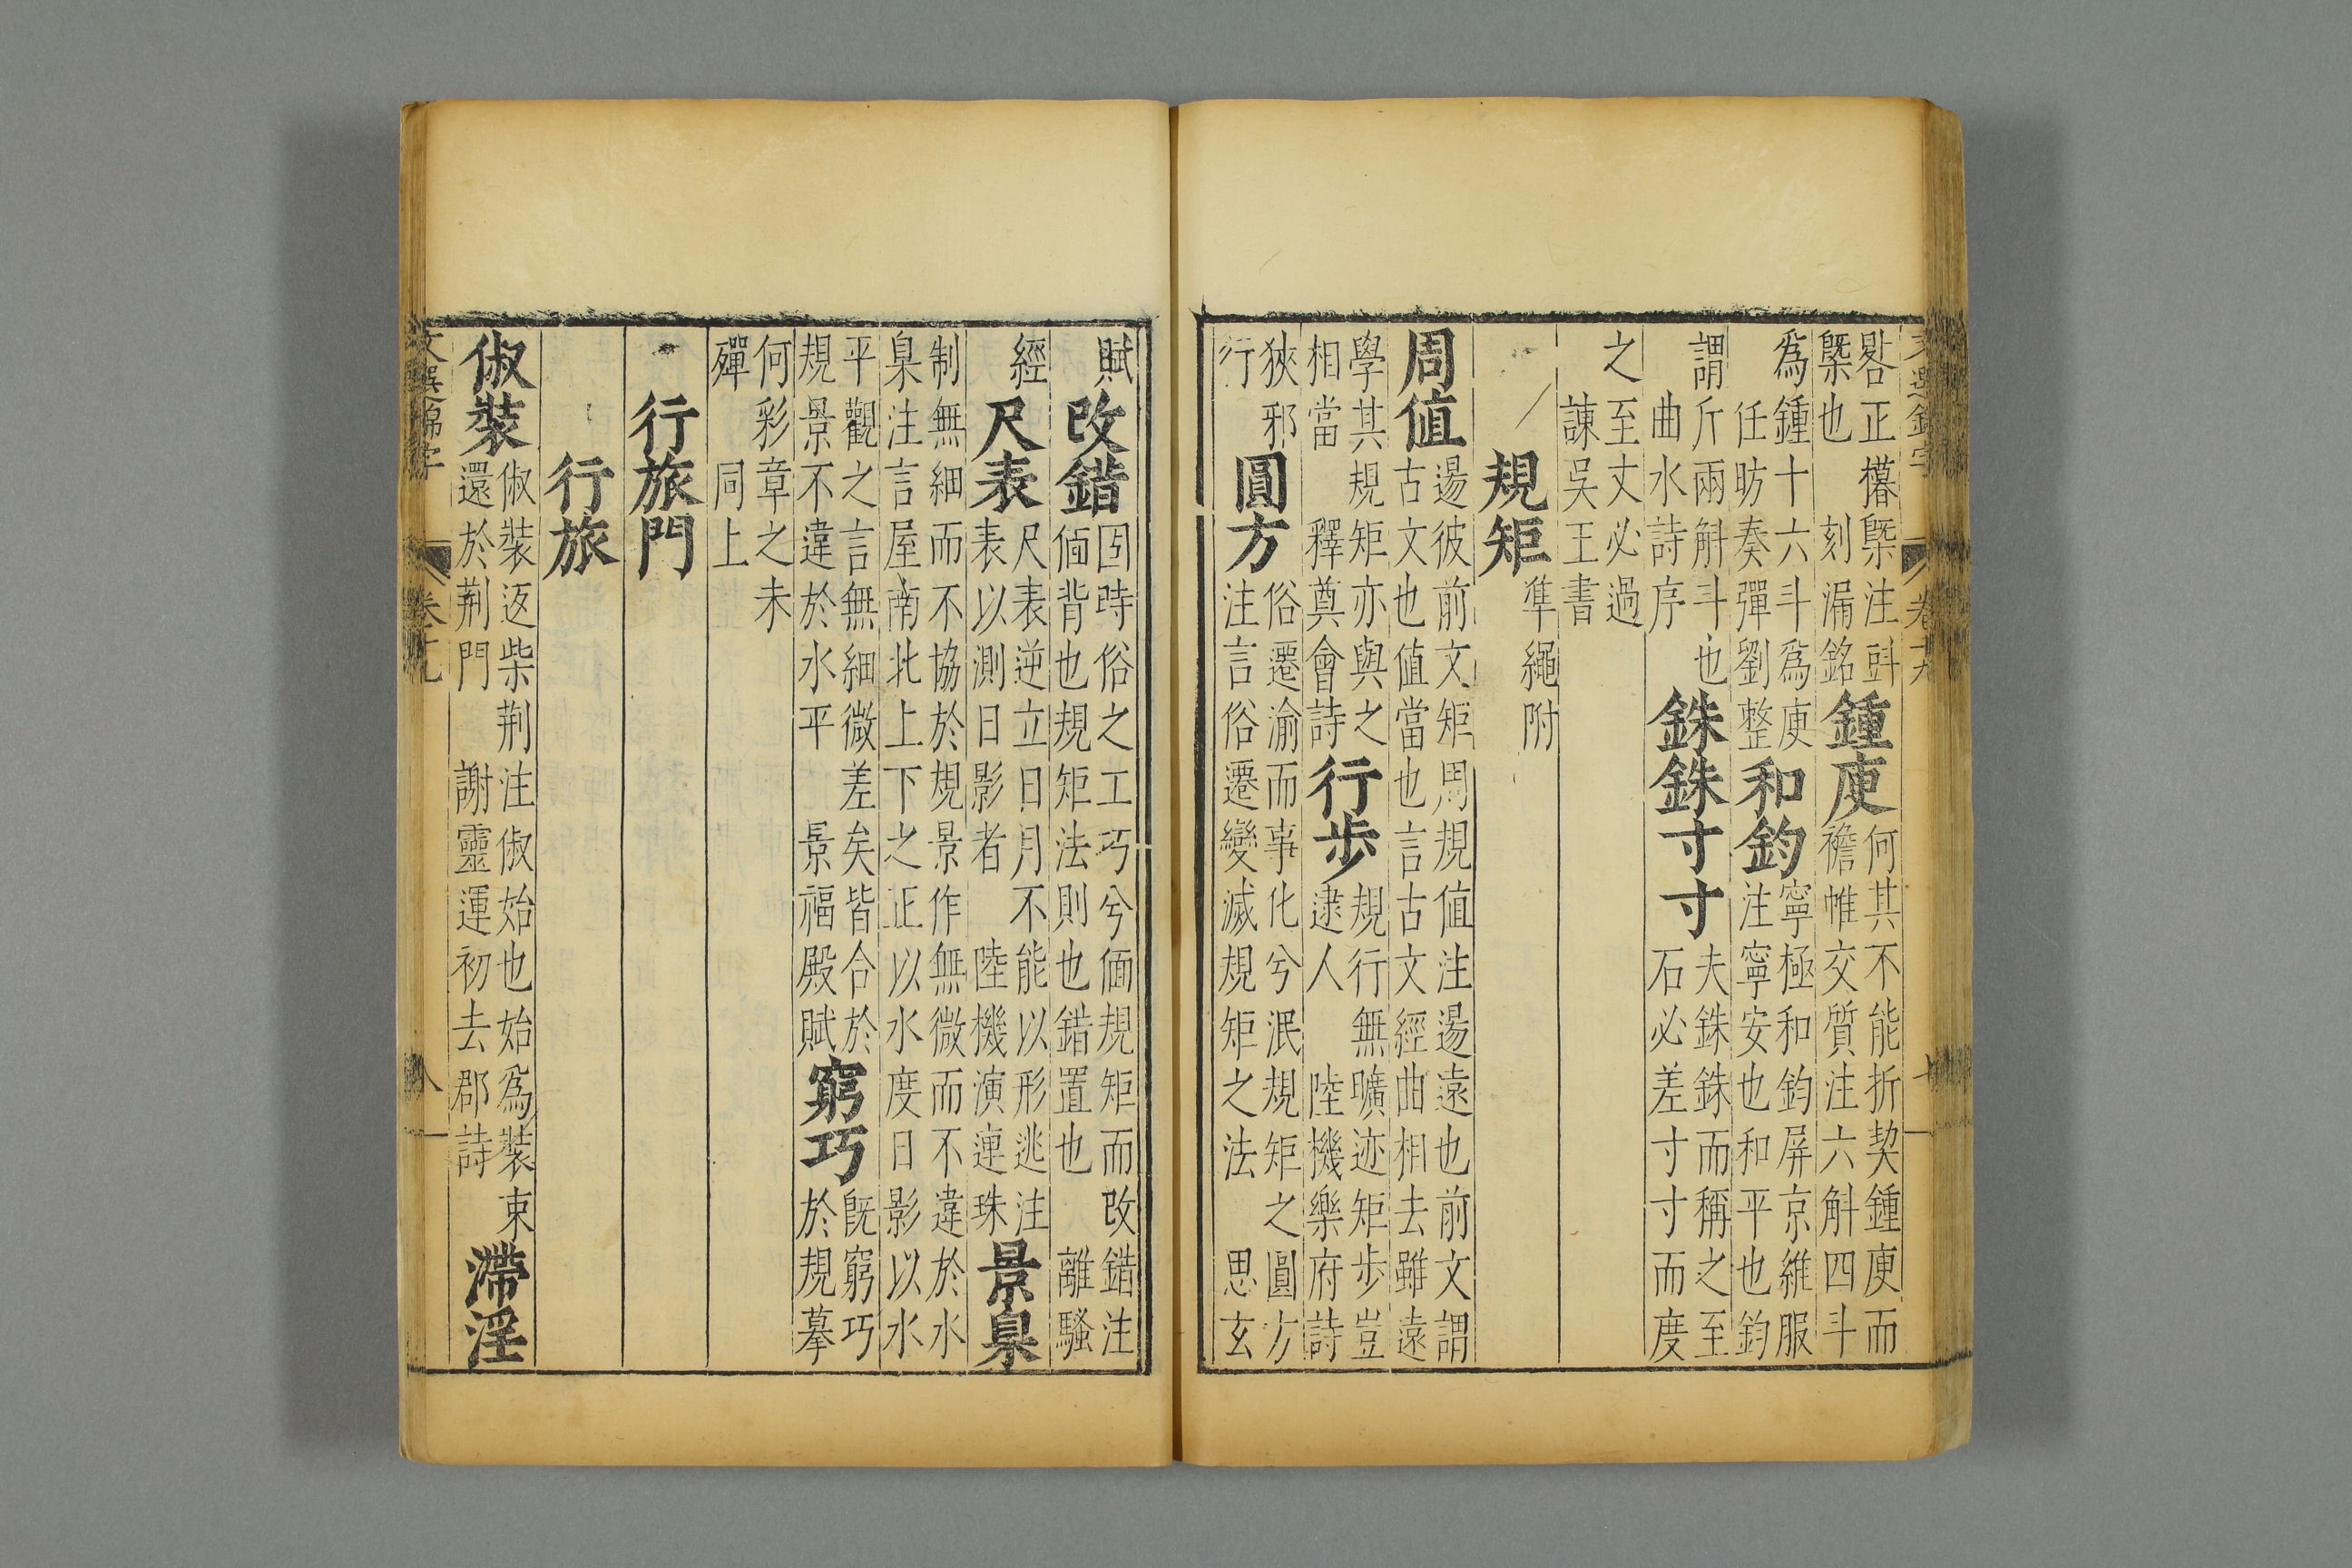 晷正權槩注㪷
槩也 刻漏銘
鍾庾
何其不能折契鍾庾而
襜帷交質注六斛四斗
爲鍾十六斗爲庾
任昉奏彈劉整
和鈞
寧極和鈞屏京維服
注寧安也和平也鈞
謂斤兩斛斗也
曲水詩序
銖銖寸寸
夫銖銖而稱之至
石必差寸寸而度
之至丈必過
諫吳王書
規矩 準繩附
周值
逿彼前文矩周規值注逿遠也前文謂
古文也值當也言古文經曲相去雖遠
學其規矩亦與之
相當 釋奠會詩
行步
規行無曠迹矩步豈
逮人 陸機樂府詩
狹邪
行
圓方
俗遷渝而事化兮泯規矩之圓方
注言俗遷變滅規矩之法 思玄
賦
改錯
固時俗之工巧兮偭規矩而改錯注
偭背也規矩法則也錯置也 離騷
經
尺表
尺表逆立日月不能以形逃注
表以測日影者 陸機演連珠
景臬
制無細而不協於規景作無微而不違於水
臬注言屋南北上下之正以水度日影以水
平觀之言無細微差矣皆合於
規景不違於水平 景福殿賦
窮巧
既窮巧
於規摹
何彩章之未
殫 同上
行旅門
行旅
俶裝
俶裝返柴荆注俶始也始爲裝束
還於荆門 謝靈運初去郡詩
滯淫
文選錦字 卷十九 八